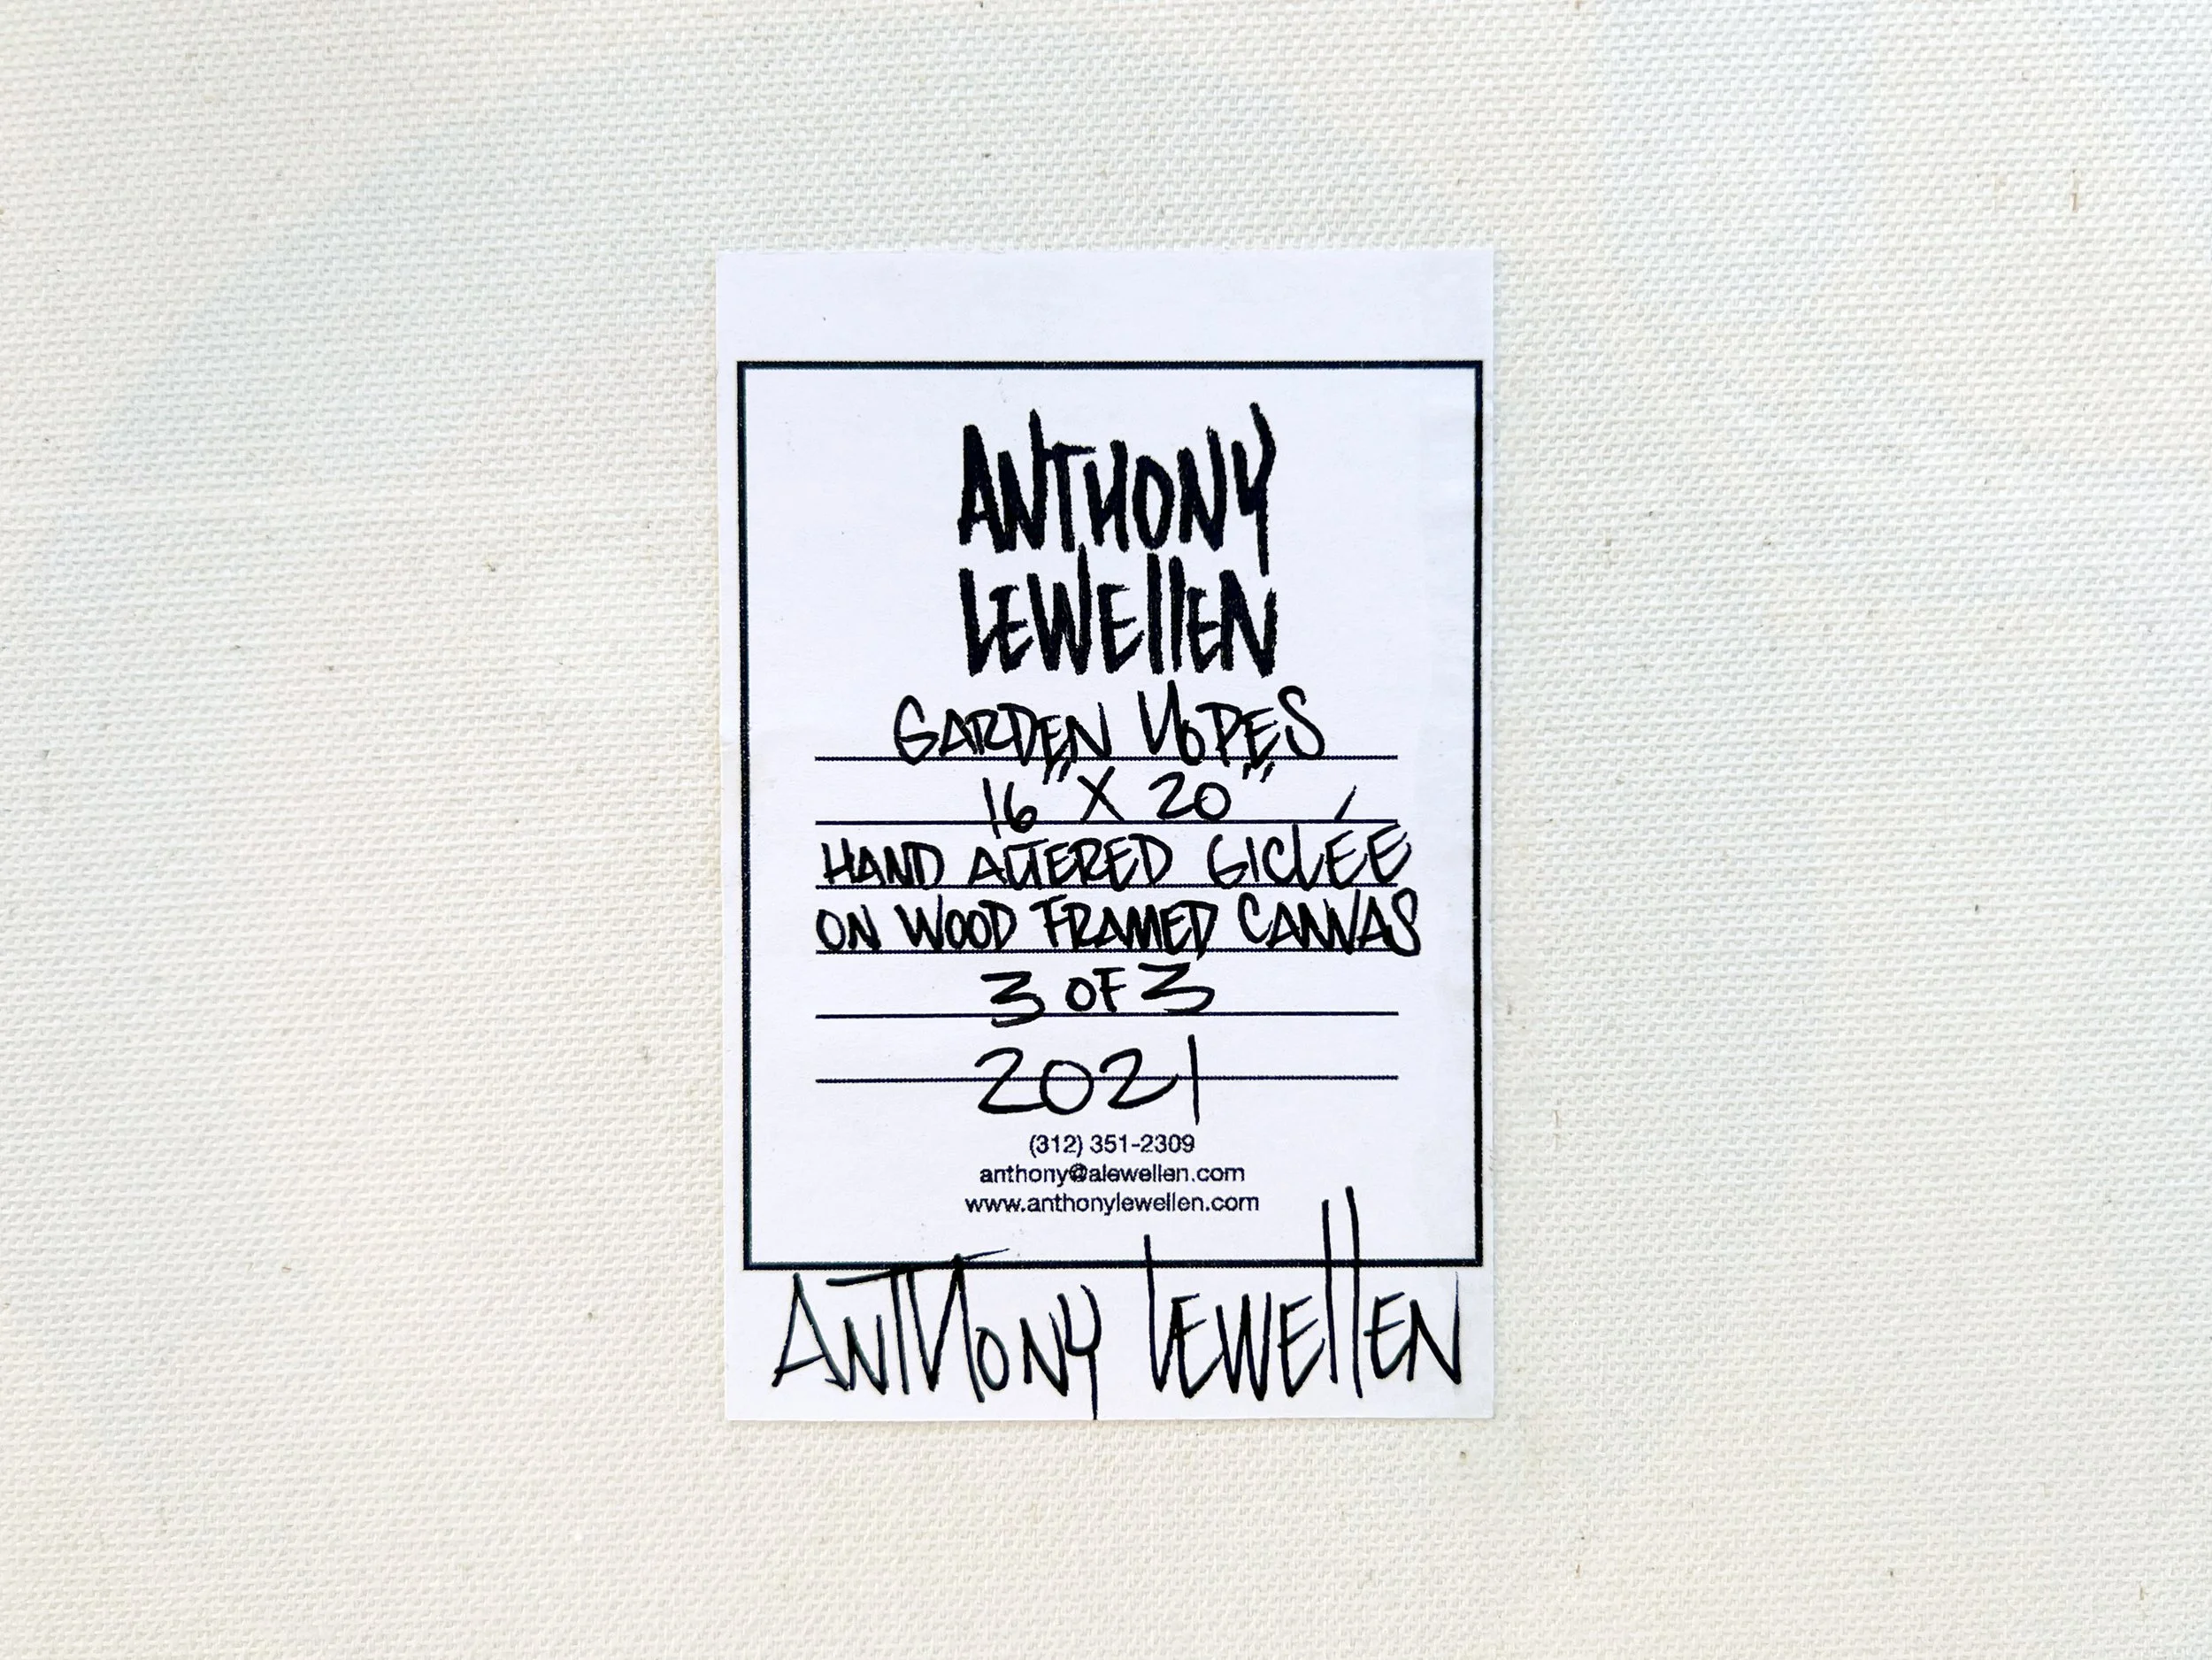 ANTHONY
LEWELLEN
GARDEN HOPES
16" X 20"
HAND ALTERED GICLÉE
ON WOOD FRAMED CANVAS
3 OF 3
2021
(312) 351-2309
anthony@alewellen.com
www.anthonylewellen.com
ANTHONY LEWELLEN